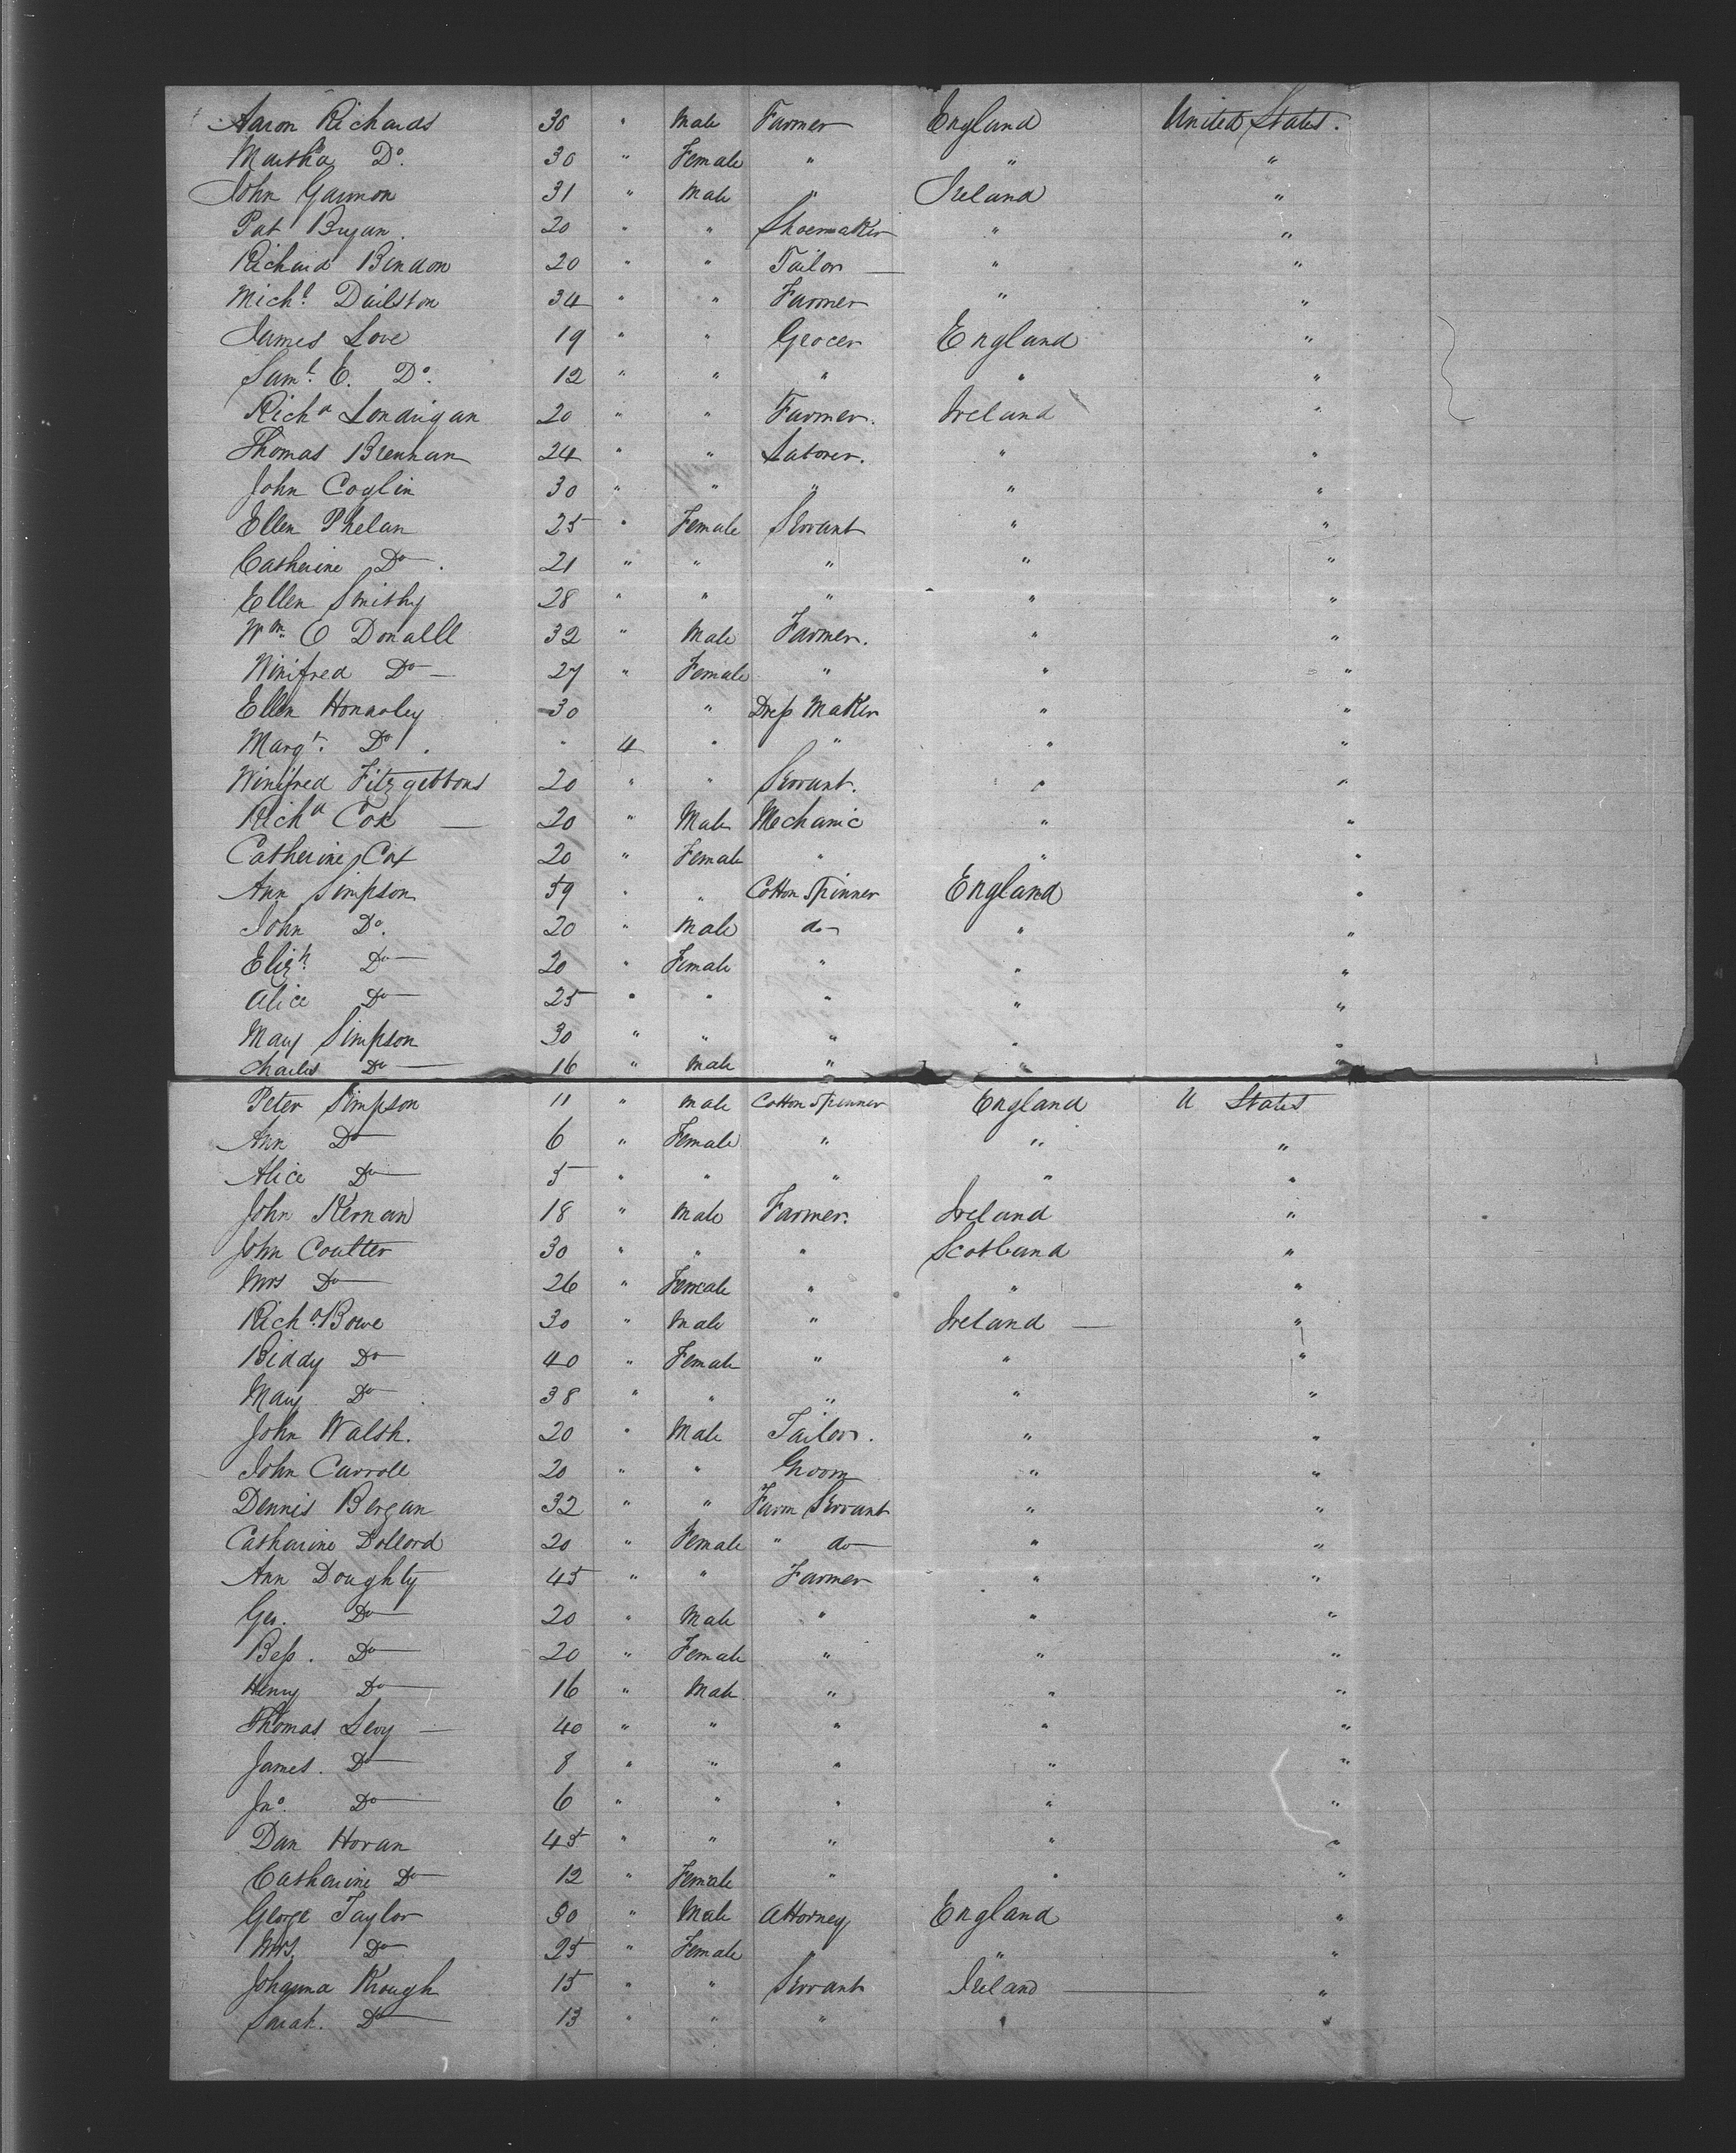 Aaron Richards 30 " Male Farmer England United States.
Martha Do. 30 " Female " " "
John Gannon 31 " Male " Ireland "
Pat Bryan. 20 " " Shoemaker " "
Richard Bendon 20 " " Tailor — " "
Michl. Dailston 34 " " Farmer " "
James Love 19 " " Grocer England "
Saml. E. Do. 12 " " " " "
Richd Londrigan 20 " " Farmer. Ireland "
Thomas Brennan 24 " " Laborer. " "
John Coglin 30 " " " " "
Ellen Phelan 25 " Female Servant " "
Catherine Do. 21 " " " " "
Ellen Smithy 28 " " " " "
Wm. O Donalll 32 " Male Farmer. " "
Winifred Do — 27 " Female " " "
Ellen Honnoley 30 " Dress Maker " "
Margt. Do. " 4 " " " "
Winifred Fitzgebbons 20 " " Servant. " "
Richd Cox — 20 " Male Mechanic " "
Catherine Cox 20 " Female " " "
Ann Simpson 59 " " Cotton Spinner England "
John Do. 20 " Male do " "
Elizh. Do 20 " Female " " "
Alice Do 25 " " " " "
Mary Simpson 30 " " " " "
Charles Do 16 " Male " " "
Peter Simpson 11 " Male Cotton Spinner England U States
Ann Do 6 " Female " " "
Alice Do 5 " " " " "
John Kernan 18 " Male Farmer. Ireland "
John Coulter 30 " " " Scotland "
Mrs Do 26 " Female " " "
Richd. Bowe 30 " Male " Ireland — "
Biddy Do 40 " Female " " "
Mary Do 38 " " " " "
John Walsh. 20 " Male Tailor. " "
John Carroll 20 " " Groom " "
Dennis Bergan 32 " " Farm Servant " "
Catharine Dollord 20 " Female " do " "
Ann Doughty 45 " " Farmer " "
Geo. Do 20 " Male " " "
Bess. Do 20 " Female " " "
Henry Do 16 " Male " " "
Thomas Levy — 40 " " " " "
James. Do 8 " " " " "
Jno. Do 6 " " " " "
Dan Horan 45 " " " " "
Catharine Do 12 " Female " " "
George Taylor 30 " Male Attorney England "
Mrs. Do 25 " Female " " "
Johanna Keough 15 " " Servant Ireland — "
Sarah. Do 13 " " " " "